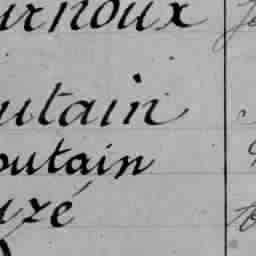 urnoux
utain
outain
uzé